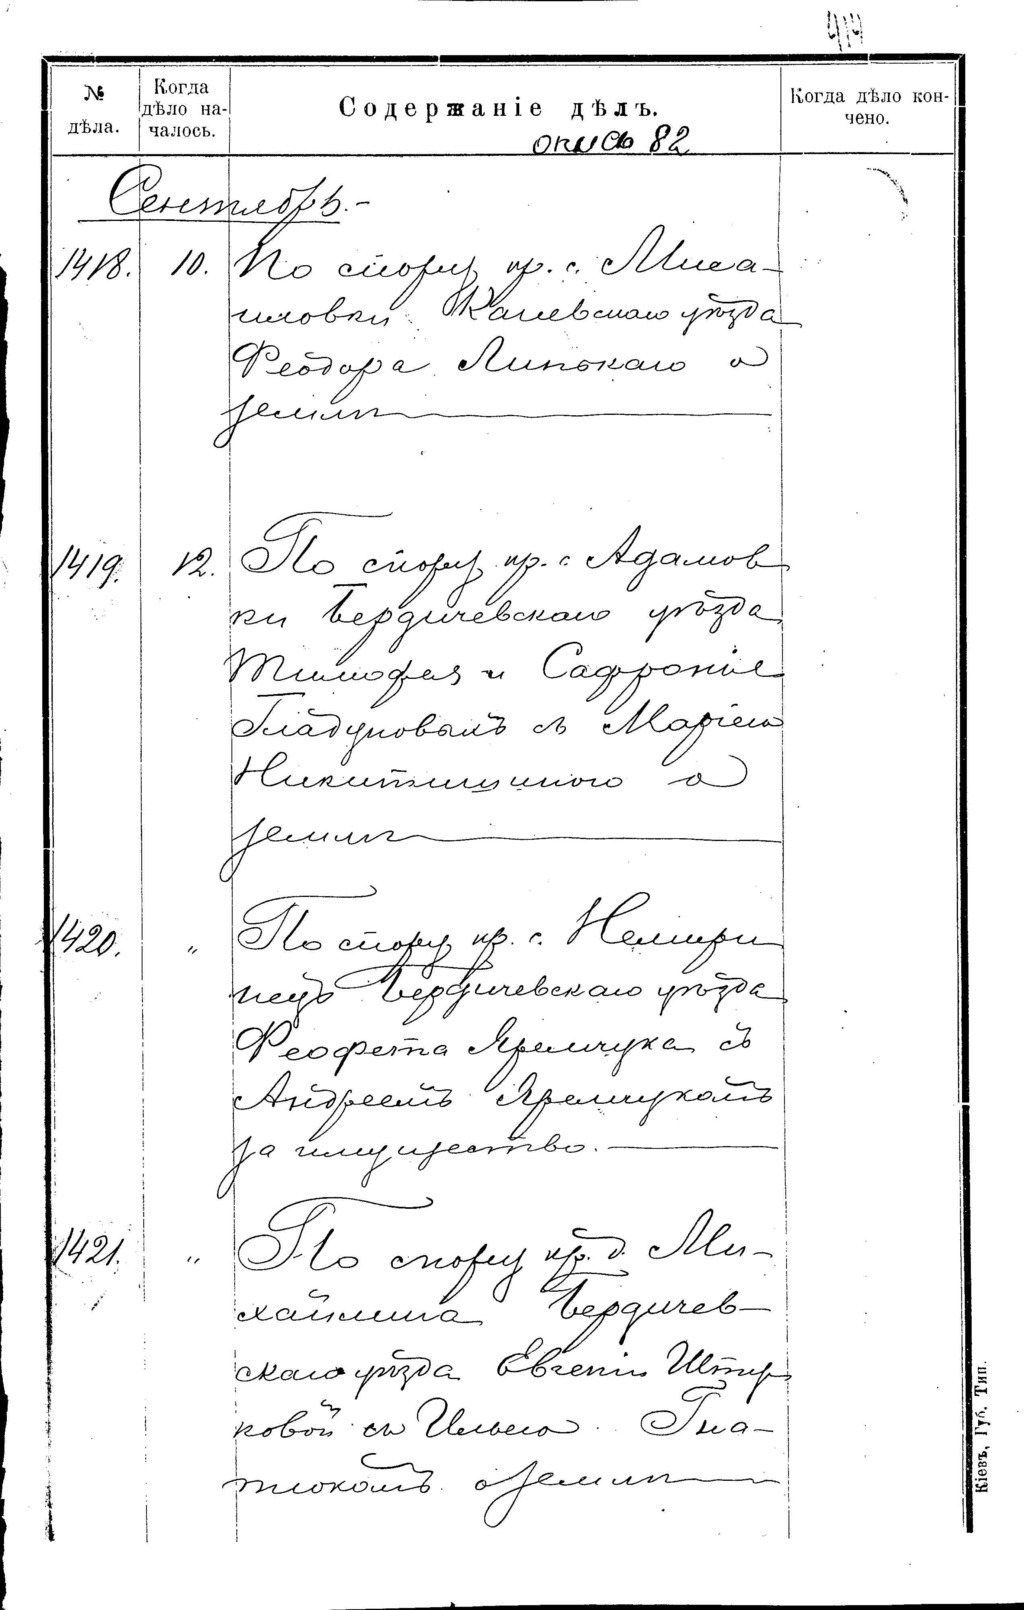 414
№ дѣла.
Когда дѣло началось.
Содержаніе дѣлъ.
Когда дѣло кончено.
опись 82
Сентябрь.-
1418. 10. По спору кр. с.
Каневскаго уѣзда
Феодора Липскаго о
землѣ
1419. 12. По спору кр. с. Адамов
ки Бердичевскаго уѣзда
Тимофея и Сафронія
Гладуновымъ съ Маріею
о
землѣ
1420. „ По спору кр. с. Немири
нецъ Бердичевскаго уѣзда
Феофета Яремчука съ
Андреемъ Яремчукомъ
за имущество.
1421. „ По спору кр. д. Ми-
хайлина Бердичев-
скаго уѣзда Евгеніи
ковой съ Ильею Гна-
тюкомъ о землѣ
Кіевъ, Губ. Тип.